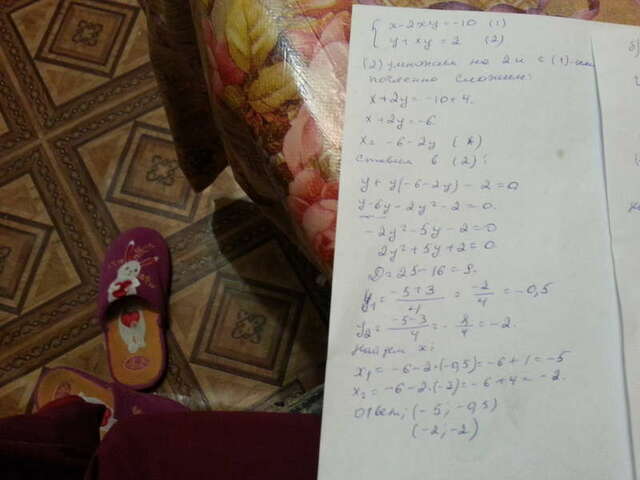 { x-2xy=-10 (1)
{ y+xy=2 (2)
(2) умножаем на 2 и с (1)
почленно сложим:
x+2y=-10+4.
x+2y=-6
x=-6-2y (*)
ставим в (2):
y+y(-6-2y)-2=0
y-6y-2y²-2=0.
-2y²-5y-2=0
2y²+5y+2=0
D=25-16=9.
y₁= (-5+3)/4 = -2/4 = -0,5
y₂= (-5-3)/4 = -8/4 = -2.
Найдем x:
x₁=-6-2·(-0,5)=-6+1=-5
x₂=-6-2·(-2)=-6+4=-2.
Ответ: (-5; -0,5)
(-2; -2)
б)